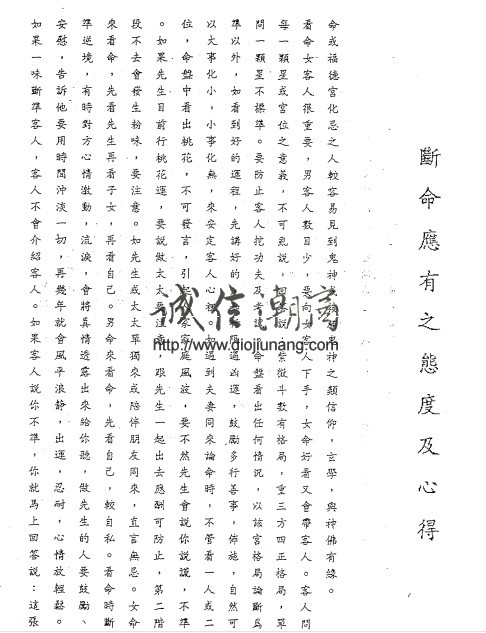 斷命應有之態度及心得
命或福德宮化忌之人較容易見到鬼神或
鬼神之類信仰，玄學，與神佛有緣。
看命女客人很重要，男客人數目少，要向女客人下手，女命好看又會帶客人。客人問
每一顆星或宮位之意義，不可亂說，
紫微斗數有格局，重三方四正格局，單
問一顆星不標準。要防止客人挖功夫及
命盤看出任何情況，以該宮格局論斷為
準以外，如看到好的運程，先講好的
限過凶運，鼓勵多行善事，佈施，自然可
以大事化小，小事化無，來安定客人心裡。
遇到夫妻同來論命時，不管看一人或二
位，命盤中看出桃花，不可發言，引起
家家庭風波，要不然先生會說你說謊，不準
。如果先生目前行桃花運，要說做太太要注意，跟先生一起出去應酬可防止，第二階
段不去會發生粉味，要注意。如先生或太太單獨來或陪停朋友同來，直言無忌。女命
來看命，先看先生再看子女，再看自己。男命來看命，先看自己，較自私。看命時斷
準逆境，有時對方心情激動，流淚，會將真情透露出來給你聽，做先生的人要鼓勵、
安慰，告訴他要用時間沖淡一切，再幾年就會風平浪靜，出運，忍耐，心情放輕鬆。
如果一味斷準客人，客人不會介紹客人。如果客人說你不準，你就馬上回答說：這張
誠信潮商
http://www.diojiunang.com